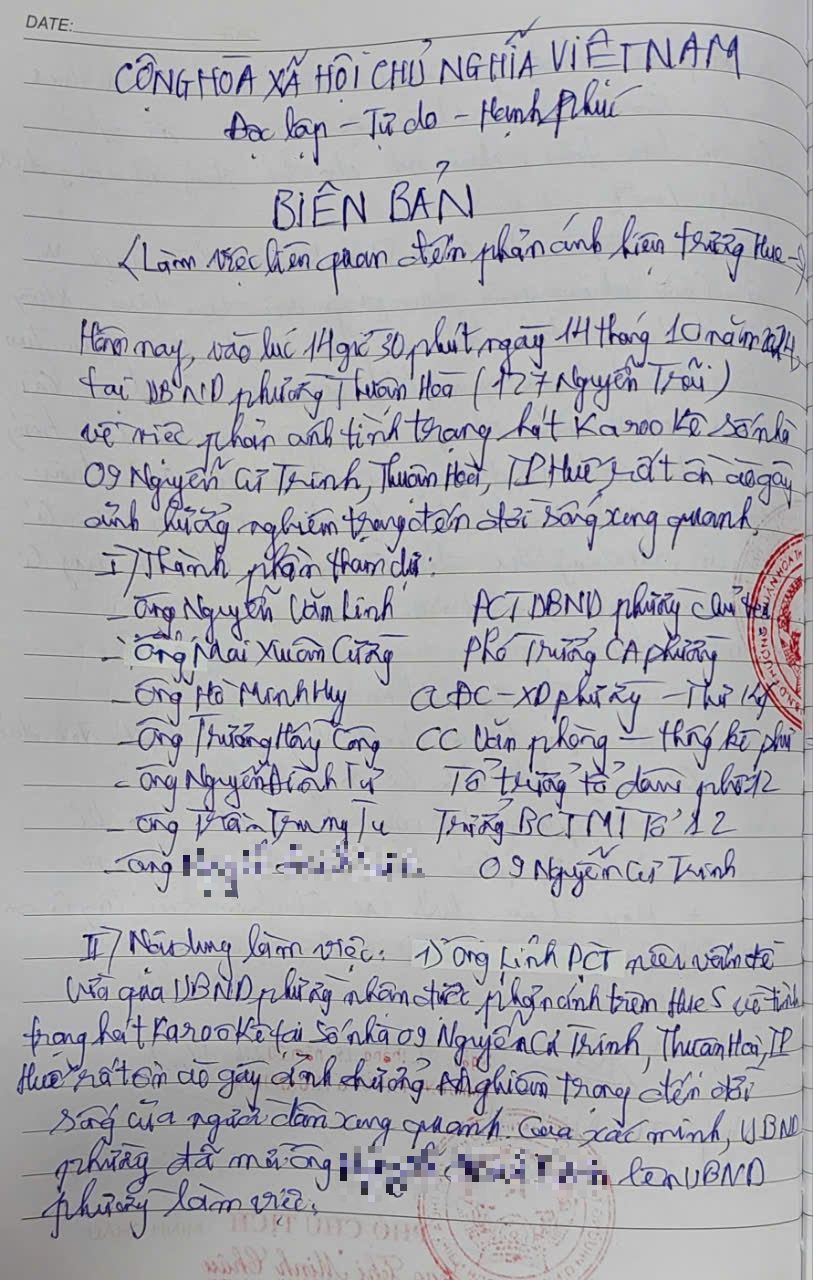 DATE:
CỘNG HÒA XÃ HỘI CHỦ NGHĨA VIỆT NAM
Độc lập - Tự do - Hạnh phúc
BIÊN BẢN
(Làm việc liên quan đến phản ánh hiện trường Hue-S)
Hôm nay, vào lúc 14 giờ 30 phút ngày 14 tháng 10 năm 2024,
tại UBND phường Thuận Hoà (127 Nguyễn Trãi)
về việc phản ánh tình trạng hát Karaoke số nhà
09 Nguyễn Cư Trinh, Thuận Hoà, TP Huế rất ồn ào gây
ảnh hưởng nghiêm trọng đến đời sống xung quanh.
I) Thành phần tham dự:
- Ông Nguyễn Văn Linh PCT UBND phường chủ trì
- Ông Mai Xuân Cường Phó Trưởng CA phường
- Ông Hồ Minh Huy ĐC-XD phường - Thư ký
- Ông Trương Công CC Văn phòng - thống kê
- Ông Nguyễn Đình Tứ Tổ trưởng tổ dân phố 12
- Ông Trần Trung Tu Trưởng BCTMT Tổ 12
- Ông 09 Nguyễn Cư Trinh
II) Nội dung làm việc: 1) Ông Linh PCT nêu vấn đề
Vừa qua UBND phường nhận được phản ánh trên Hue S về tình
trạng hát Karaoke tại số nhà 09 Nguyễn Cư Trinh, Thuận Hoà, TP
Huế rất ồn ào gây ảnh hưởng nghiêm trọng đến đời
sống của người dân xung quanh. Qua xác minh, UBND
phường đã mời ông lên UBND
phường làm việc.
PHÓ CHỦ TỊCH